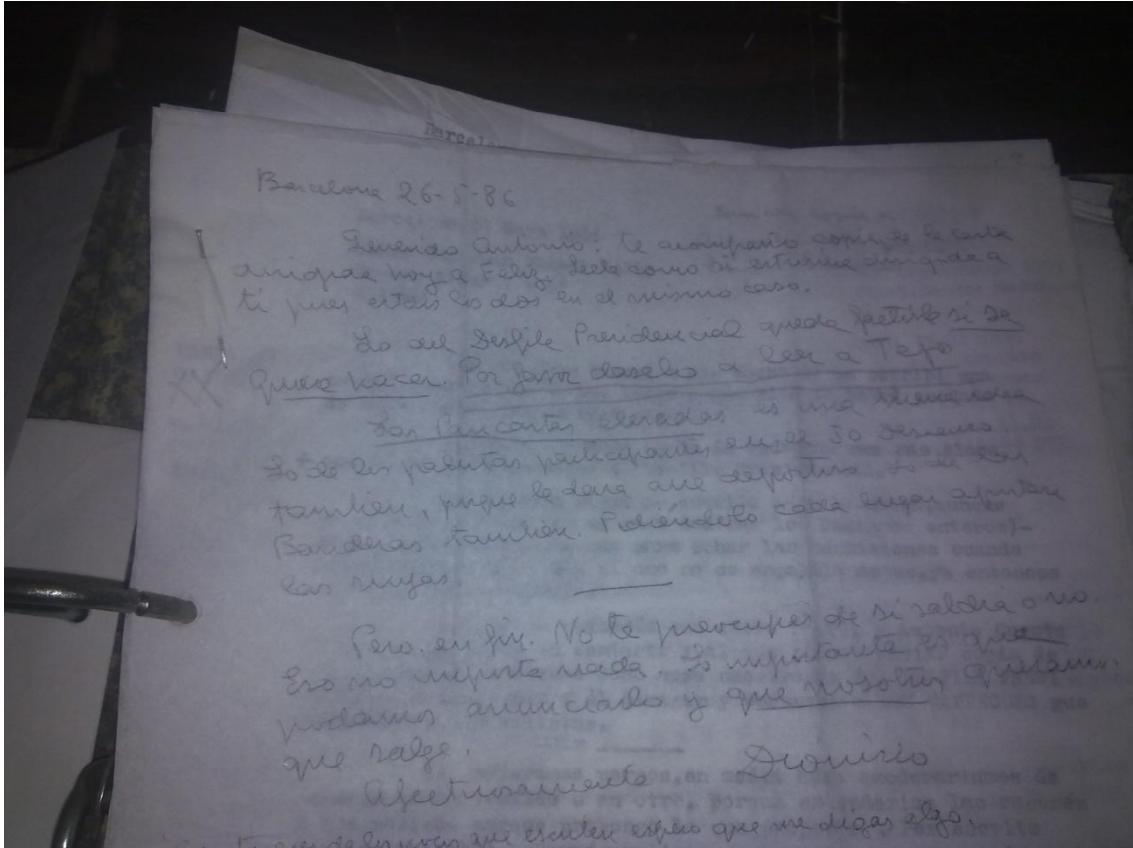 Barcelona 26-5-86
Querido Antonio: te acompaño copia de la carta
dirigida hoy a Feliz. Leela como si estuviese dirigida a
ti pues estais los dos en el mismo caso.
Lo del Desfile Presidencial queda factible si se
quiere hacer. Por favor daselo a leer a Tejo
Las Pancartas elevadas es una buena idea
Lo de las participantes en el So
tambien, porque le dara aire deportivo. Lo de las
Banderas tambien. Pidiéndolo cada lugar
las suyas.
Pero, en fin. No te preocupes de si saldrá o no.
Eso no importa nada. Lo importante es que
podamos anunciarlo y que nosotros queramos
que salga.
Afectuosamente Dionisio
que escriben espero que me digas algo.